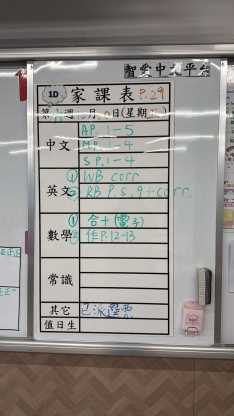 智愛中文平台
1D 家課表 P.29
第六週10月10日(星期五)
中文
AP. 1-5
M.P. 1-4
S.P. 1-4
英文
① WB corr
② RB P.8,9+corr
數學
① 合+(電子)
② 作P.12-13
常識
其它
已派選書
值日生